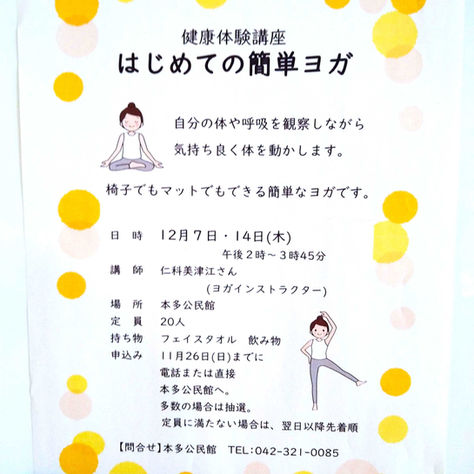 健康体験講座
はじめての簡単ヨガ
自分の体や呼吸を観察しながら
気持ち良く体を動かします。
椅子でもマットでもできる簡単なヨガです。
日 時 12月7日・14日(木)
午後2時～3時45分
講 師 仁科美津江さん
(ヨガインストラクター)
場 所 本多公民館
定 員 20人
持ち物 フェイスタオル 飲み物
申込み 11月26日(日)までに
電話または直接
本多公民館へ。
多数の場合は抽選。
定員に満たない場合は、翌日以降先着順
【問合せ】本多公民館 TEL:042-321-0085